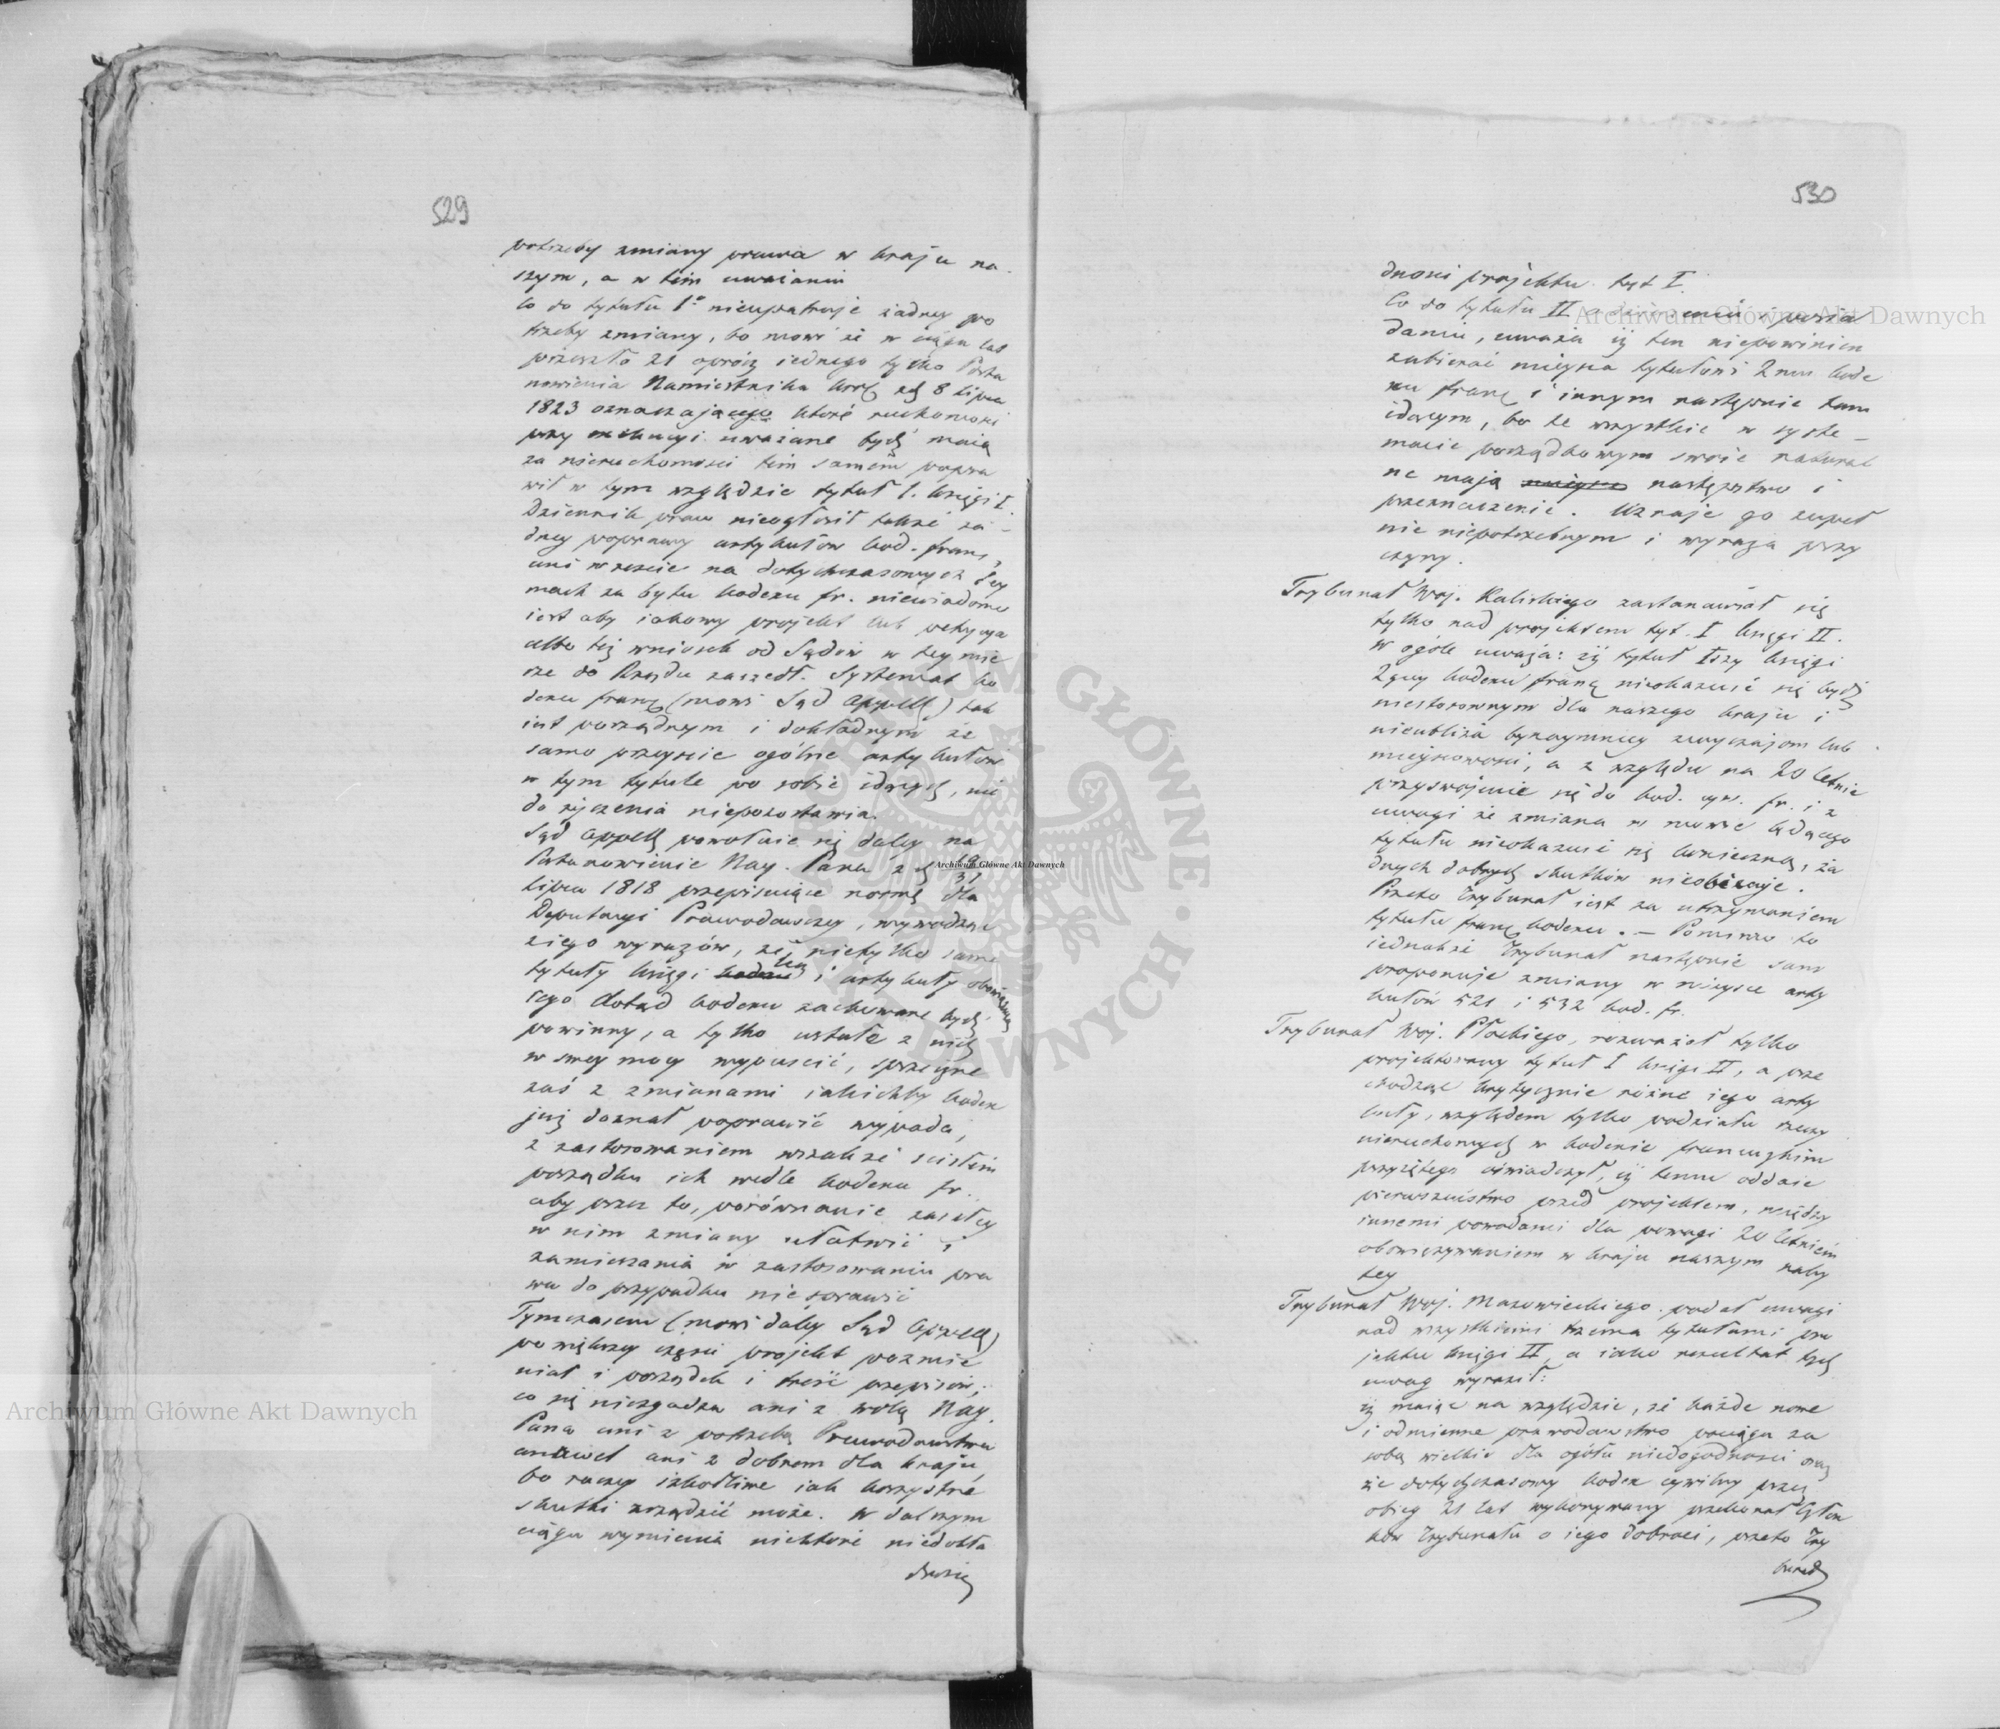 529
potrzeby zmiany prawa w kraju na-
szym, a w tem uważaniu
Co do tytułu 1º nieupatruje żadney po
trzeby zmiany, bo mowi że w ciągu lat
przeszło 21 oprócz iednego tylko Posta
nowienia Namiestnika z d 8 Lipca
1823 oznaczającego które ruchomosci
przy uważane bydź maią
za nieruchomosci tem samém popra
wił w tym względzie tytuł 1. księgi I.
Dziennik praw nieogłosił także ża-
dney poprawy artykułów kod. franc,
ani wreście na dotychczasowych Sey
mach za bytu kodexu fr. niewiadomo
iest aby iakowy projekt lub petycya
albo też wniosek od Sądów w tey mie
rze do Rządu zaszedł. Systemat ko
dexu franc (mowi Sąd Appell) tak
iest porządnym i dokładnym że
samo przeyście ogólne artykułów
w tym tytule po sobie idących, nic
do życzenia niepozostawia.
Sąd Appell powołuie się daley na
Postanowienie Nay. Pana z d
Lipca 1818 przepisuiące normę dla
Deputacyi Prawodawczey, wywodząc
z iego wyrazów, że nietylko same
tytuły księgi i artykuły obowiązuią
cego dotąd kodexu zachowane bydź
powinny, a tylko ustałe z nich
w swey mocy wypuścić, sprzeczne
zaś z zmianami iakichby kodex
już doznał poprawić wypada,
z zastosowaniem wszakże scisłém
porządku ich wedle kodexu fr.
aby przez to, porównanie zaszłey
w nim zmiany ułatwić i
zamieszania w zastosowaniu pra
wa do przypadku nie sprawić
Tymczasem (mowi daley Sąd Appell)
po większey części projekt pozmie
niał i porządek i treść przepisów;
co się niezgadza ani z wolą Nay.
Pana ani z potrzebą Prawodawstwa
anawet ani z dobrem dla kraju,
bo raczey szkodliwe iak korzystné
skutki zrządzić może. W dalszym
ciągu wymienia niektóré niedokła
dności
530
dnosci projektu tyt I.
Co do tytułu II o posia
daniu, uważa iż ten niepowinien
zabierać mieysca tytułowi 2mu kode
xu franc i innym następnie tam
idącym, bo te wszystkie w syste-
macie porządkowym swoie natural
ne mają następstwo i
przeznaczenie. Uznaje go zupeł
nie niepotrzebnym i wyraża przy
czyny.
Trybunał Woj. Kaliskiego zastanawiał się
tylko nad projektem tyt. I księgi II.
W ogóle uważa: iż tytuł Iszy księgi
2giey kodexu franc nieokazuié się bydź
niestosownym dla naszego kraju i
nieubliża bynaymniey zwyczajom lub
mieyscowosci, a z względu na 20 letnie
przyswojenie się do kod. cyw. fr. i z
uwagi że zmiana w mowie będącego
tytułu nieokazuié się konieczną, ża
dnych dobrych skutków nieobiecuje.
Przeto Trybunał iest za utrzymaniem
tytułu franc kodexu. — Pomimo to
iednakże Trybunał następnie sam
proponuje zmiany w mieysce arty
kułów 521 i 532 kod. fr.
Trybunał Woj. Płockiego, rozważał tylko
projektowany tytuł I księgi II, a prze
chodząc krytycznie różne iego arty
kuły, względem tylko podziału rzeczy
nieruchomych w kodexie francuzkim
przyiętego oświadczył, iż temu oddaie
pierwszeństwo przed projektem, między
innemi powodami dla powagi 20 letniém
obowiązywaniem w kraju naszym naby
tey
Trybunał Woj. Mazowieckiego podał uwagi
nad wszystkiemi trzema tytułami pro
jektu księgi II, a iako rezultat tych
uwag wyraził:
iż maiąc na względzie, że każde nowe
i odmienne prawodawstwo pociąga za
sobą wielkie dla ogółu niedogodnosci oraz
że dotychczasowy kodex cywilny przez
obieg 21 lat wykonywany przekonał Człon
ków Trybunału o iego dobroci, przeto Try
bunał
Archiwum Główne Akt Dawnych
Archiwum Główne Akt Dawnych
Archiwum Główne Akt Dawnych
ARCHIWUM GŁÓWNE AKT DAWNYCH